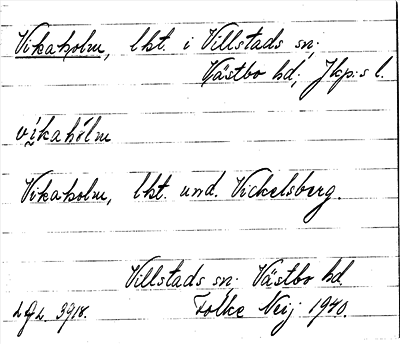 Vikaholm, lht. i Villstads sn;
Västbo hd; Jkp:s l.
víkahólm
Vikaholm, lht. und. Vickelsberg.
Villstads sn; Västbo hd.
Folke Neij 1940.
3918.